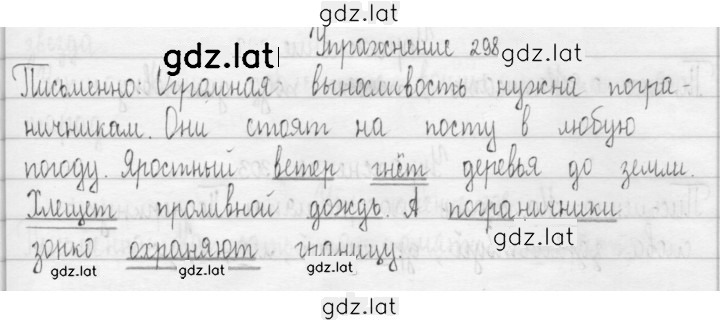 gdz.lat
gdz.lat Упражнение 298
Письменно: Огромная выносливость нужна погра-
ничникам. Они стоят на посту в любую
погоду. Яростный ветер гнёт деревья до земли.
gdz.lat
Хлещет проливной дождь. А пограничники
gdz.lat gdz.lat
зорко охраняют границу.
gdz.lat gdz.lat gdz.lat
gdz.lat